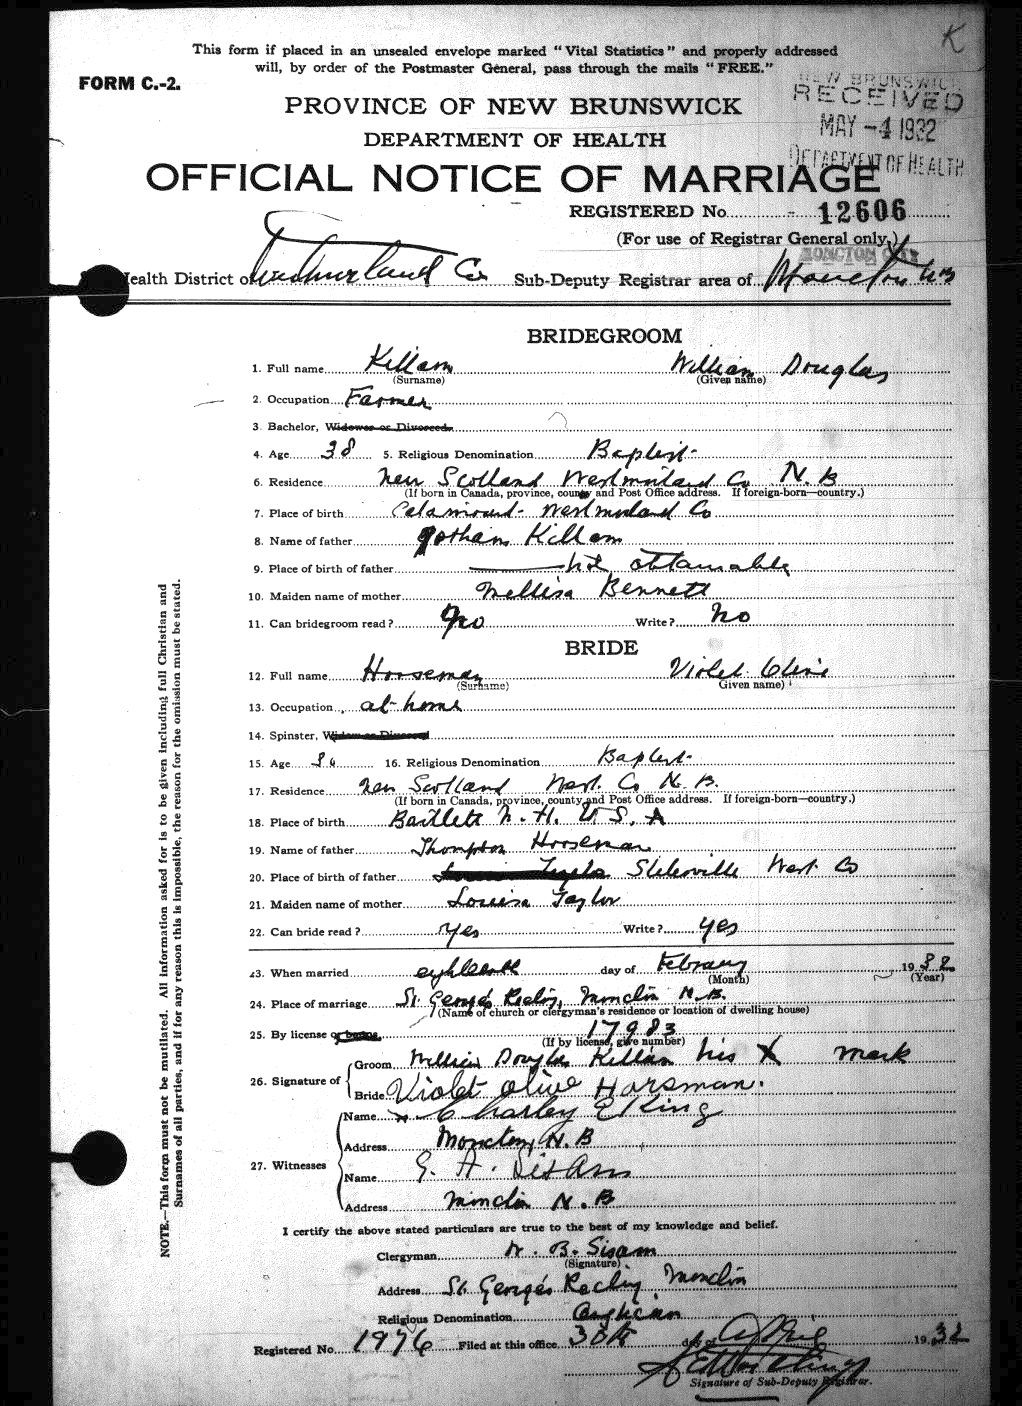 K
This form if placed in an unsealed envelope marked "Vital Statistics" and properly addressed
will, by order of the Postmaster General, pass through the mails "FREE."
FORM C.-2.
NEW BRUNSWICK
RECEIVED
MAY -4 1932
DEPARTMENT OF HEALTH
PROVINCE OF NEW BRUNSWICK
DEPARTMENT OF HEALTH
OFFICIAL NOTICE OF MARRIAGE
REGISTERED No. 12606
(For use of Registrar General only.)
MONCTON CITY
Health District of Westmorland Co Sub-Deputy Registrar area of Moncton NB
BRIDEGROOM
1. Full name Killam William Douglas
(Surname) (Given name)
2. Occupation Farmer
3. Bachelor, Widower or Divorced
4. Age 38 5. Religious Denomination Baptist
6. Residence New Scotland Westmorland Co N.B
(If born in Canada, province, county and Post Office address. If foreign-born—country.)
7. Place of birth Westmorland Co
8. Name of father Killam
9. Place of birth of father not obtainable
10. Maiden name of mother Mellisa Bennett
11. Can bridegroom read? No Write? No
BRIDE
12. Full name Horseman Violet Olive
(Surname) Given name)
13. Occupation at home
14. Spinster, Widow or Divorced
15. Age 36 16. Religious Denomination Baptist
17. Residence New Scotland West. Co N.B.
(If born in Canada, province, county and Post Office address. If foreign-born—country.)
18. Place of birth Bartlett N.H. U S. A
19. Name of father Thompson Horseman
20. Place of birth of father West. Co
21. Maiden name of mother Louisa Taylor
22. Can bride read? Yes Write? Yes
23. When married eighteenth day of February 1932
(Month) (Year)
24. Place of marriage St George's Rectory, Moncton N.B.
(Name of church or clergyman's residence or location of dwelling house)
25. By license or banns 17983
(If by license, give number)
26. Signature of
Groom William Douglas Killam his X mark
Bride Violet Olive Horsman.
27. Witnesses
Name Charley E King
Address Moncton, N.B
Name G. A. Sisam
Address Moncton N.B
I certify the above stated particulars are true to the best of my knowledge and belief.
Clergyman W. B. Sisam
(Signature)
Address St George's Rectory, Moncton
Religious Denomination Anglican
Registered No. 1976 Filed at this office 30th day of April 1932
Signature of Sub-Deputy Registrar.
NOTE.—This form must not be mutilated. All information asked for is to be given including full Christian and
Surnames of all parties, and if for any reason this is impossible, the reason for the omission must be stated.